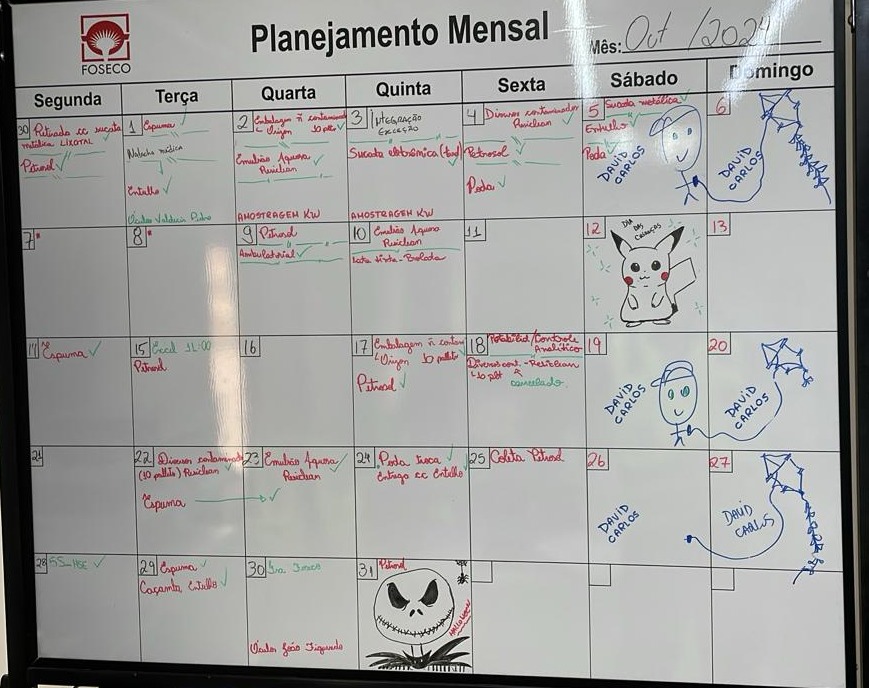 FOSECO
Planejamento Mensal
Mês: Out /2024
Segunda
Terça
Quarta
Quinta
Sexta
Sábado
Domingo
30 Retirada cc sucata
metálica
Petrosol
1 Espuma
médica
Entulho
Óculos
2 Embalagem ñ contaminada
Origen 10 pllts
Emulsão Aquosa
Resiclean
AMOSTRAGEM KW
3 INTEGRAÇÃO
Sucata eletrônica
AMOSTRAGEM KW
4 Diversos contaminados
Resiclean
Petrosol
Poda
5 Sucata metálica
Entulho
Poda
DAVID
CARLOS
6
DAVID
CARLOS
7
8
9 Petrosol
Ambulatorial
10 Emulsão Aquosa
Resiclean
11
12 DIA
DAS
CRIANÇAS
13
14 Espuma
15 Excel 11:00
Petrosol
16
17 Embalagem ñ contam
Origen 10 pallets
Petrosol
18 Potabilid/Controle
Analítico
Diversos cont. - Resiclean
10 plt
cancelado.
19
DAVID
CARLOS
20
DAVID
CARLOS
21
22 Diversos contaminados
(10 pallets) Resiclean
Espuma
23 Emulsão Aquosa
Resiclean
24 Poda
Entrega cc Entulho
25 Coleta Petrosol
26
DAVID
CARLOS
27
DAVID
CARLOS
28 5S_HSE
29 Espuma
Caçamba Entulho
30
Óculos João Figueredo
31 Petrosol
HALLOWEEN